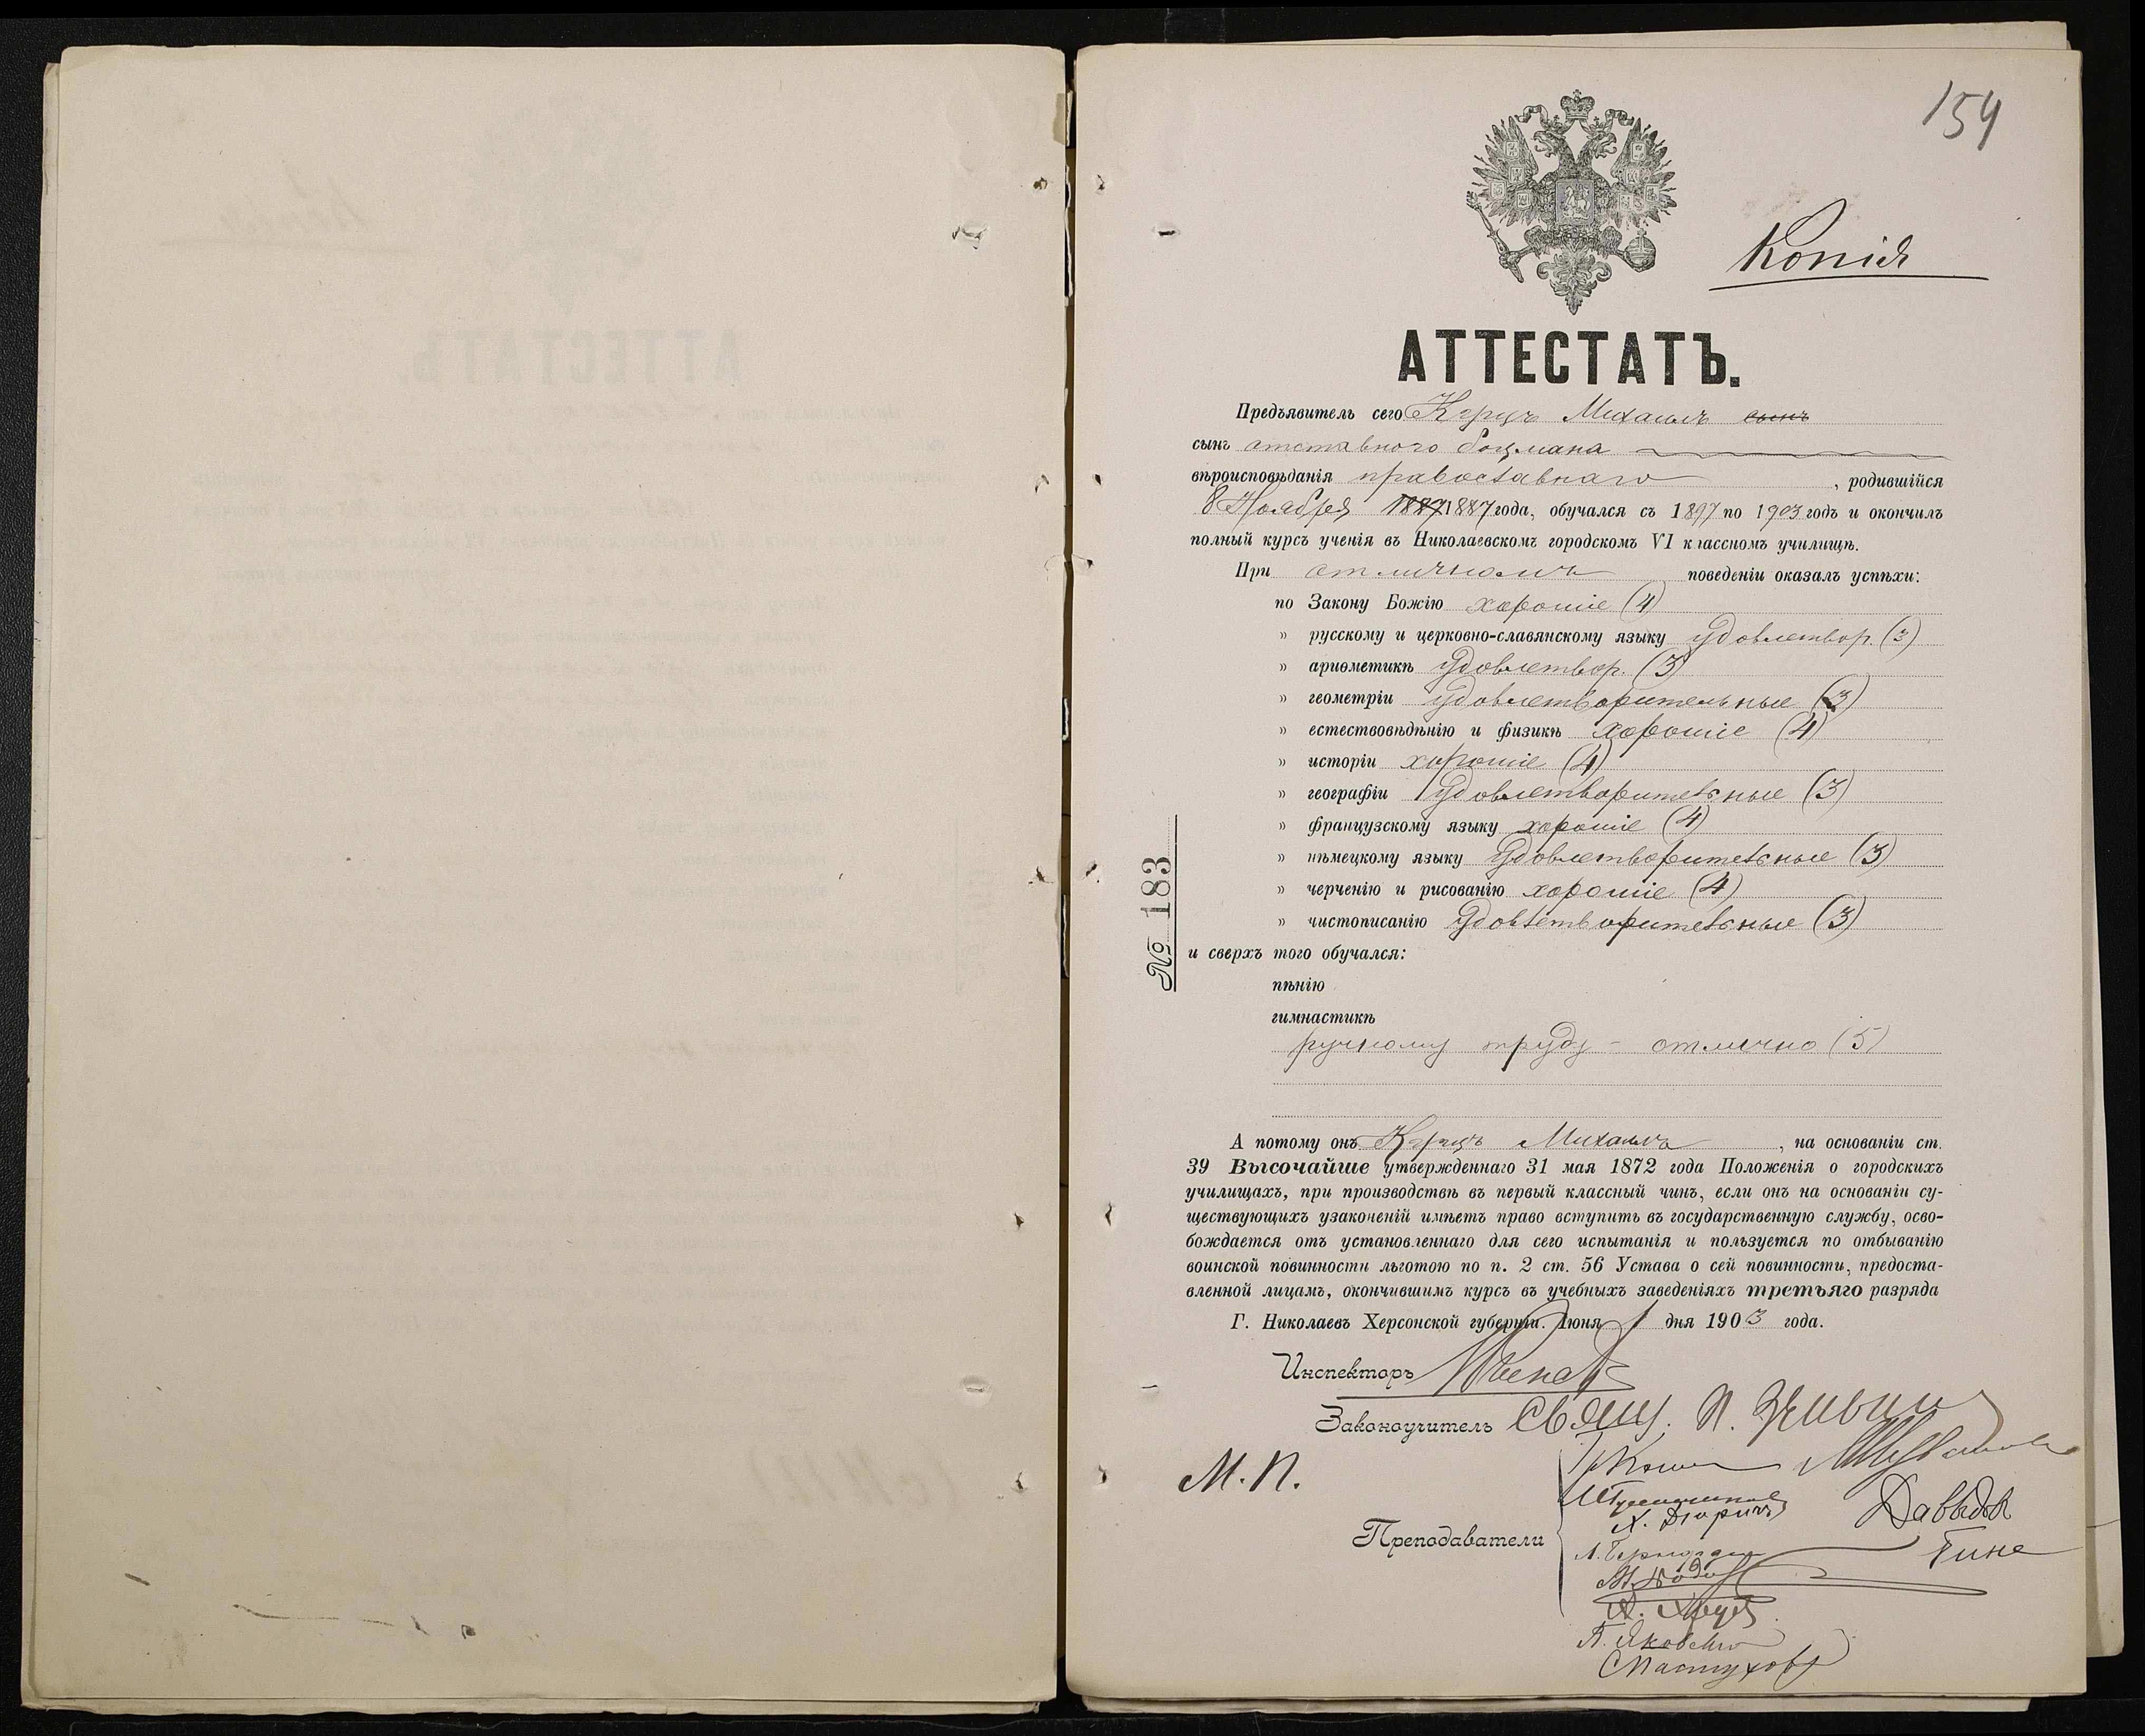 154
Копія
АТТЕСТАТЪ.
Предъявитель сего Курцъ Михаилъ сынъ
сынъ отставного боцмана
вѣроисповѣданія православнаго, родившійся
8 Ноября 1887 1887 года, обучался съ 1897 по 1903 годъ и окончилъ
полный курсъ ученія въ Николаевскомъ городскомъ VI классномъ училищѣ.
При отличномъ поведеніи оказалъ успѣхи:
по Закону Божію хорошіе (4)
» русскому и церковно-славянскому языку удовлетвор. (3)
» ариѳметикѣ удовлетвор. (3)
» геометріи удовлетворительные (3)
» естествовѣдѣнію и физикѣ хорошіе (4)
» исторіи хорошіе (4)
» географіи удовлетворительные (3)
» французскому языку хорошіе (4)
» нѣмецкому языку удовлетворительные (3)
» черченію и рисованію хорошіе (4)
» чистописанію удовлетворительные (3)
№ 183
и сверхъ того обучался:
пѣнію
гимнастикѣ
ручному труду - отлично (5)
А потому онъ Курцъ Михаилъ, на основаніи ст.
39 Высочайше утвержденнаго 31 мая 1872 года Положенія о городскихъ
училищахъ, при производствѣ въ первый классный чинъ, если онъ на основаніи су-
ществующихъ узаконеній имѣетъ право вступить въ государственную службу, осво-
бождается отъ установленнаго для сего испытанія и пользуется по отбыванію
воинской повинности льготою по п. 2 ст. 56 Устава о сей повинности, предоста-
вленной лицамъ, окончившимъ курсъ въ учебныхъ заведеніяхъ третьяго разряда
Г. Николаевъ Херсонской губерніи. Іюня 1 дня 1903 года.
Инспекторъ
Законоучитель Свящ. П.
М.П.
Преподаватели
Давыдов
Х. Дюричъ
Гине
П. Яковенко
С Пастухов